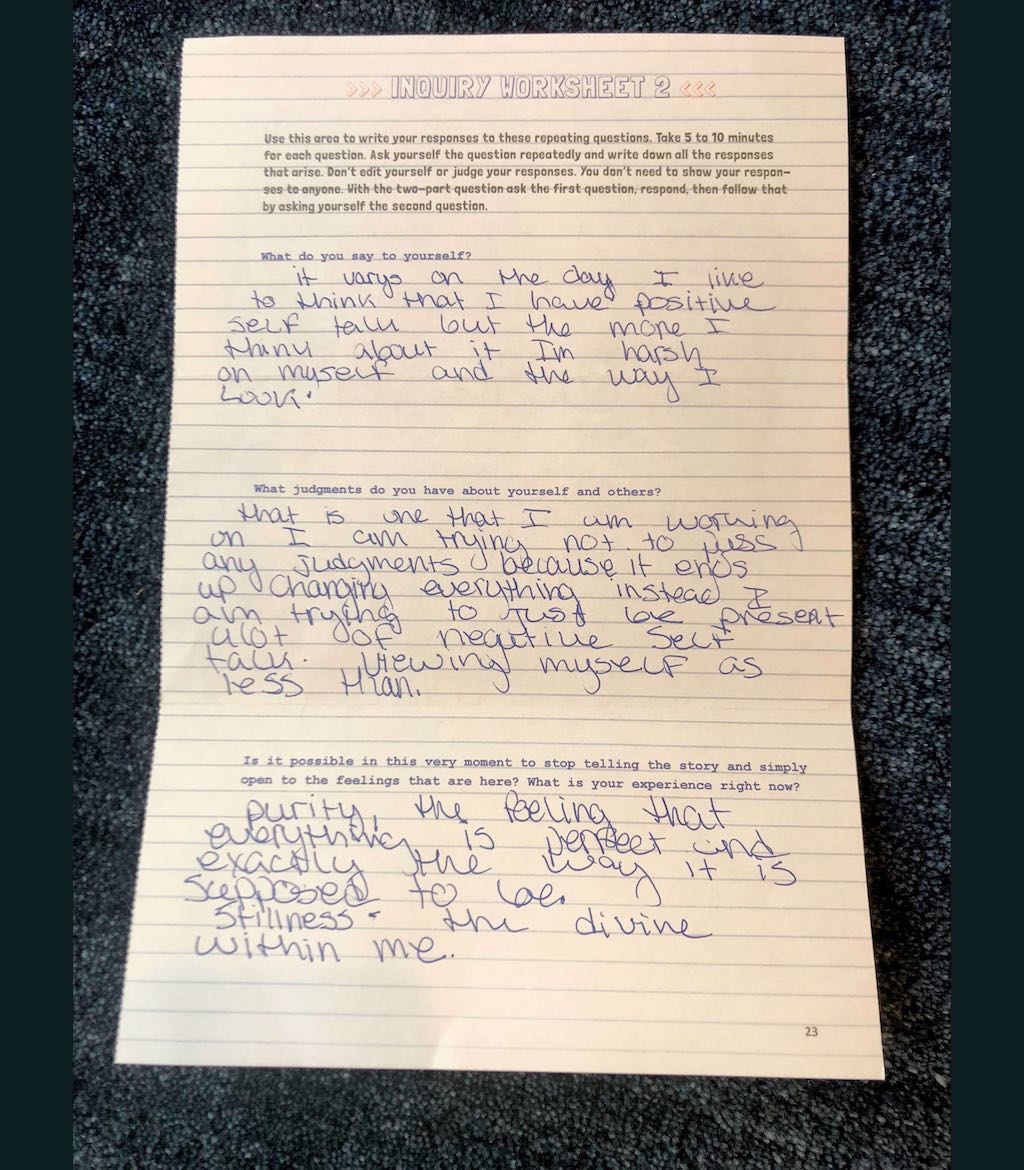 >>> INQUIRY WORKSHEET 2 <<<
Use this area to write your responses to these repeating questions. Take 5 to 10 minutes
for each question. Ask yourself the question repeatedly and write down all the responses
that arise. Don't edit yourself or judge your responses. You don't need to show your respon-
ses to anyone. With the two-part question ask the first question, respond, then follow that
by asking yourself the second question.
What do you say to yourself?
it varys on the day I like
to think that I have positive
self talk but the more I
think about it Im harsh
on myself and the way I
Look.
What judgments do you have about yourself and others?
that is one that I am working
on I am trying not to pass
any judgments because it ends
up Changing everything instead I
am trying to Just be present
alot of negative Self
talk. Viewing myself as
less than.
Is it possible in this very moment to stop telling the story and simply
open to the feelings that are here? What is your experience right now?
purity, the feeling that
everything is perfect and
exactly the way it is
Supposed to be.
Stillness - the divine
within me.
23